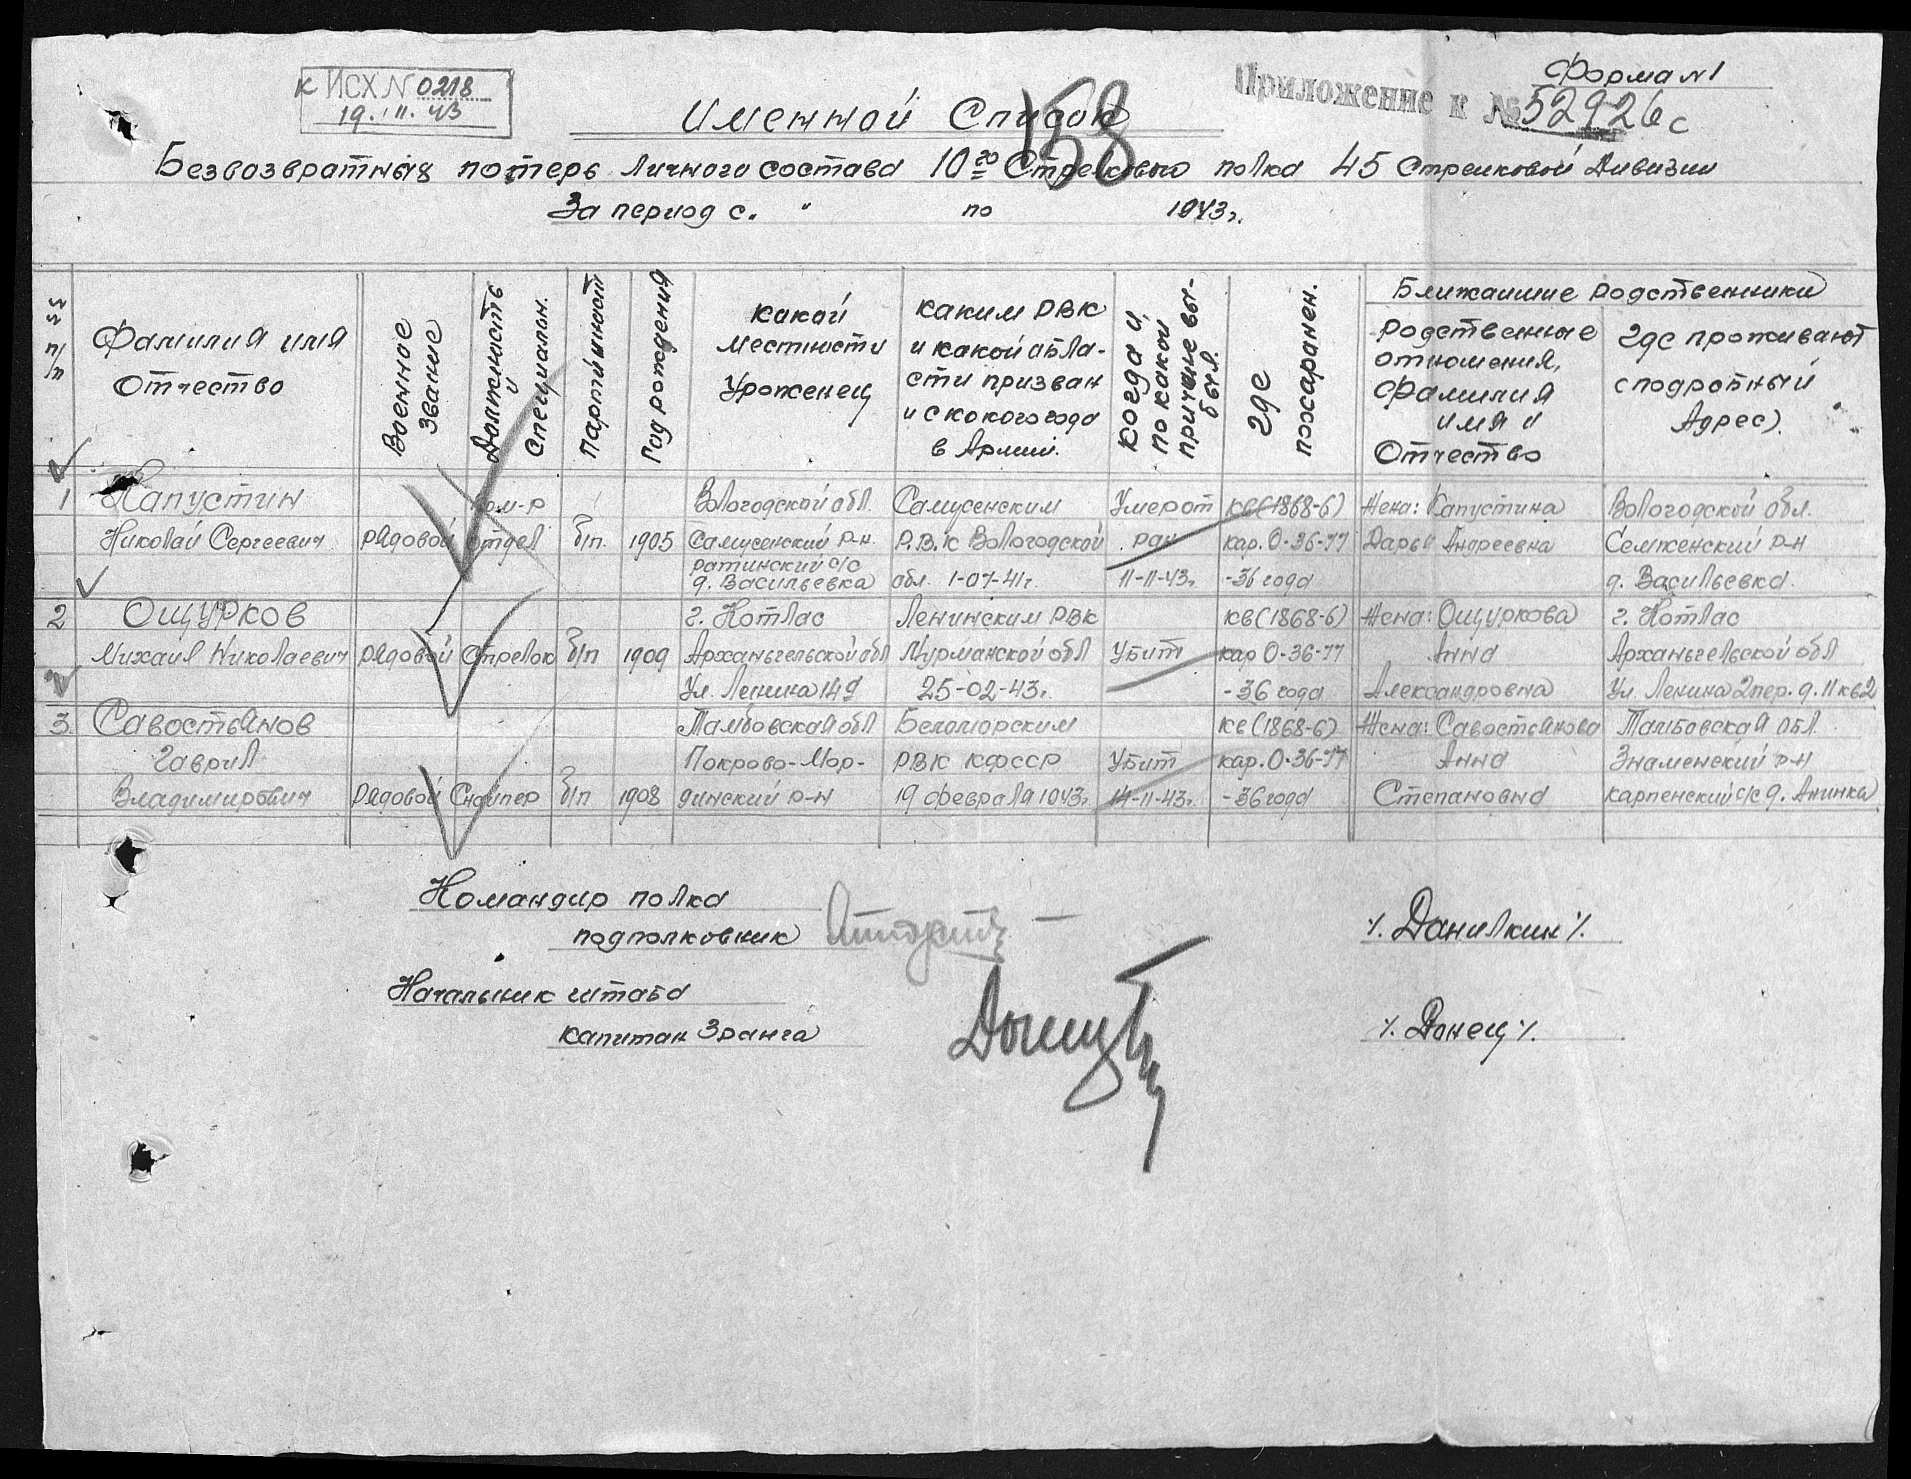 Форма №1
к ИСХ N 0218
19. 11. 43
Приложение к №52926с
Именной Список
158
Безвозвратных потерь личного состава 10го Стрелкового полка 45 Стрелковой Дивизии
За период с. " по 1943г.
№№ п/п
Фамилия имя Отчество
Военное звание
Должность и специальн.
Партийност
Год рождения
какой местности Уроженец
каким РВК и какой области призван и с кокого года в Армии.
когда и по какой причине выбыл.
где похаранен.
Ближаишие родственники
родственные отношения, Фамилия имя и Отчество
где проживают с подробный Адрес).
1 Капустин Николай Сергеевич
рядовой
Ком-р отдел
б/п.
1905
Вологодской обл. Самусенский р-н ратинский с/с д. Васильевка
Самусенским Р.В.К Вологодской обл. 1-07-41г.
Умер от ран 11-11-43г
кв(1868-б) кар. О-36-77 -36 года
Жена: Капустина Дарья Андреевна
Вологодской обл. Семженский р-н д. Васильевка.
2 Ощурков Михаил Николаевич
рядовой
Стрелок
б/п
1909
г. Котлас Архангельской обл Ул. Ленина 149
Ленинским РВК Мурманской обл 25-02-43г.
Убит
кв(1868-б) кар О-36-77 -36 года
Жена: Ощуркова Анна Александровна
г. Котлас Архангельской обл Ул. Ленина 2пер. д. 11 кв2
3. Савостьянов Гаврил Владимирович
Рядовой
Снайпер
б/п
1908
Тамбовская обл Покрово-Мординский р-н
Беломорским РВК КФССР 19 февраля 1943г.
Убит 14-11-43г.
кв(1868-б) кар. О-36-77 -36 года
Жена: Савостьянова Анна Степановна
Тамбовская обл. Знаменский р-н карпенский с/с д. Анинка
Командир полка
подполковник ./. Данилкин ./.
Начальник штаба
капитан 3ранга ./. Донец ./.